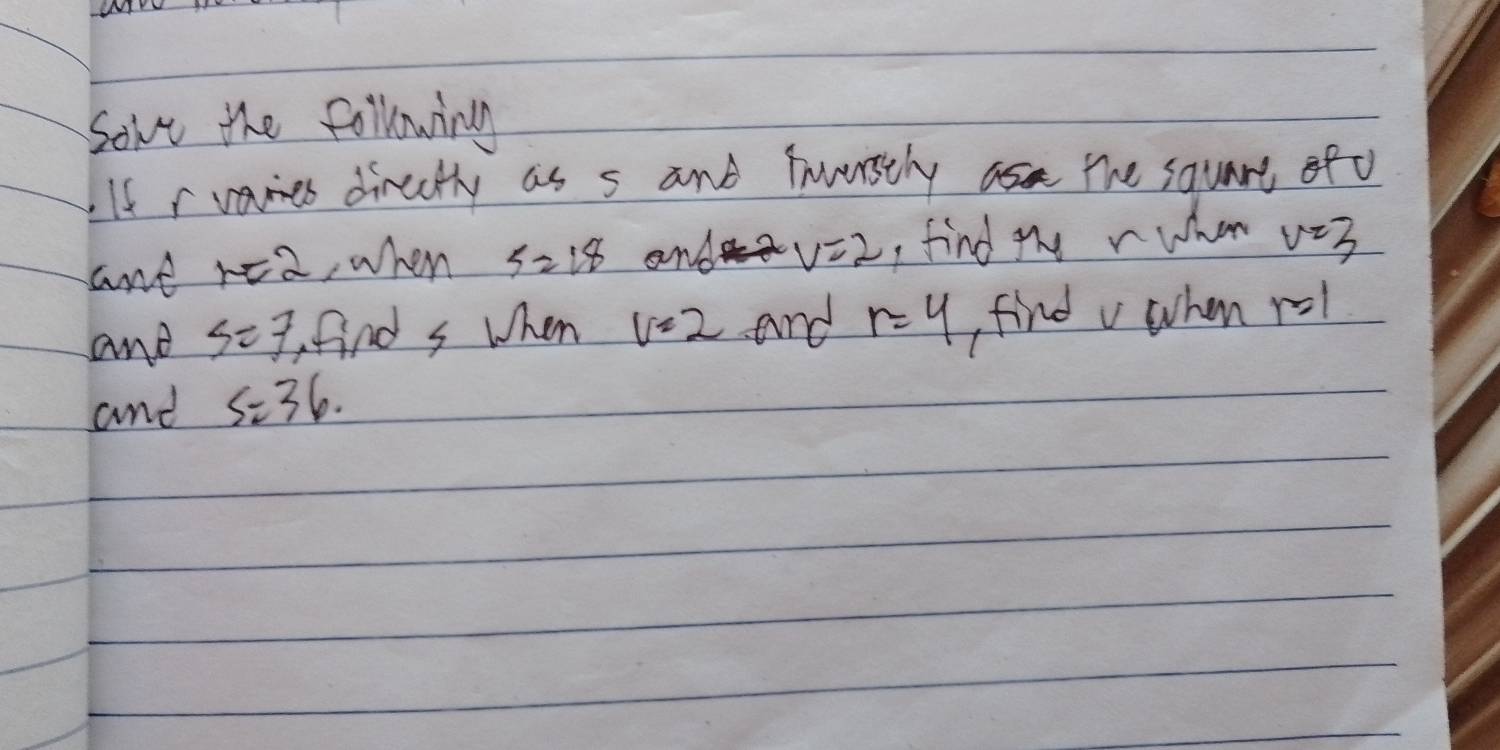 Solve the following
. If r varies directly as s and inversely as the square of v
and r=2, when s=18 and v=2, find the r when v=3
and s=7, find s when v=2 and r=4, find v when r=1
and s=36.